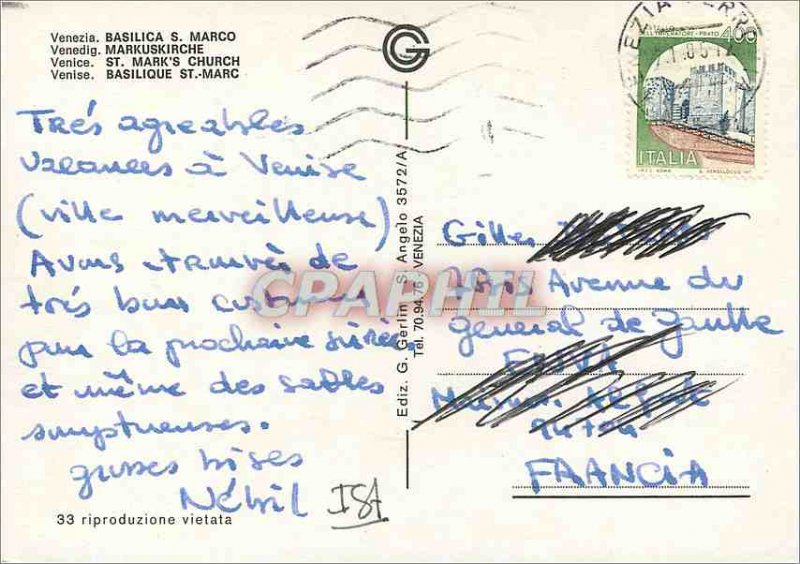 Venezia. BASILICA S. MARCO
Venedig. MARKUSKIRCHE
Venice. ST. MARK'S CHURCH
Venise. BASILIQUE ST.-MARC
G
400
ITALIA
Très agréables
vacances à Venise
(ville merveilleuse)
Avons trouvé de
très bons costumes
pour la prochaine soirée
et même des sables
somptueuses.
grosses bises
Nébil
ISA
33 riproduzione vietata
Ediz. G. Gerlin S. Angelo 3572/A
Tel. 70.94.76 VENEZIA
CPAPHIL
Gilles
Avenue du
General de Gaulle
FRANCIA